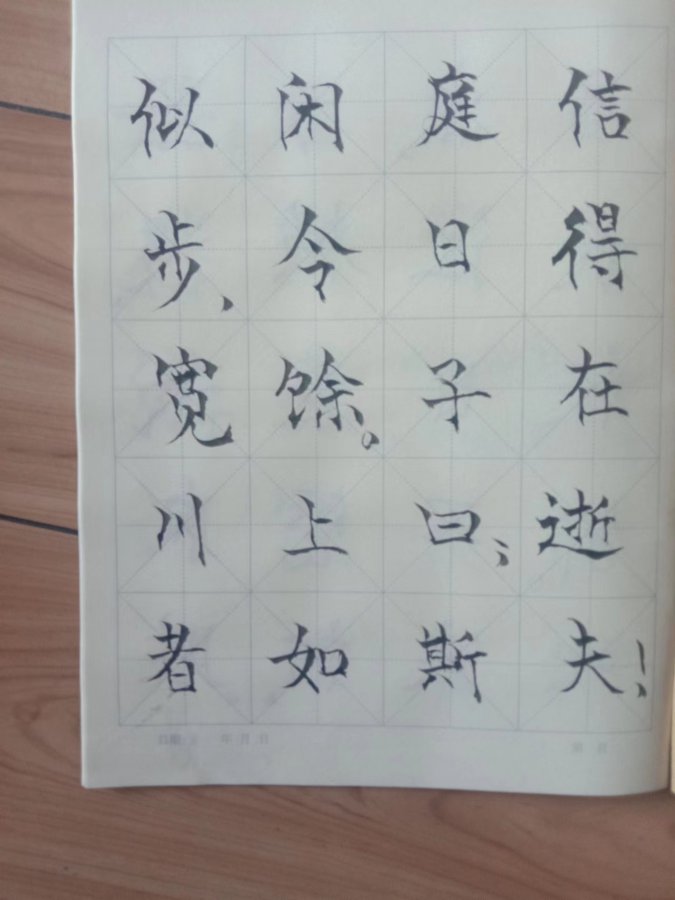 似闲庭信
步，今日得
宽馀。子在
川上曰：逝
者如斯夫！
日期： 年 月 日 第 页